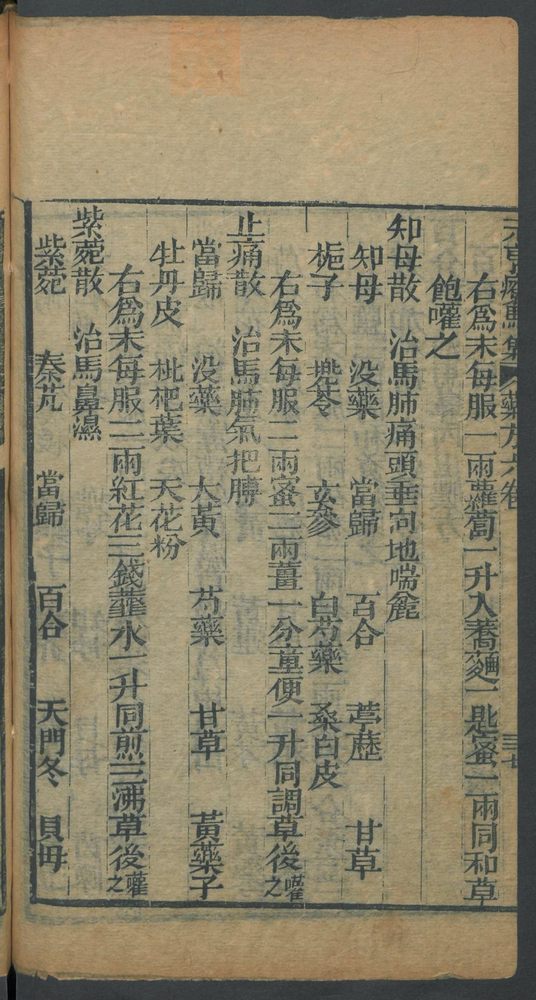 元亨療馬集 藥方六卷
右為末每服一兩蘿蔔一升入蕎麵一匙蜜一兩同和草
飽嚾之
知母散 治馬肺痛頭垂向地喘麄
知母 没藥 當歸 百合 葶藶 甘草
梔子 
玄參 白芍藥 桑白皮
右為末每服二兩蜜二兩薑一分童便一升同調草後嚾之
止痛散 治馬肺氣把膊
當歸 没藥 大黃 芍藥 甘草 黃藥子
牡丹皮 枇杷葉 天花粉
右為末每服二兩紅花三錢
水一升同煎三沸草後嚾之
紫菀散 治馬鼻濕
紫菀 秦艽 當歸 百合 天門冬 貝母